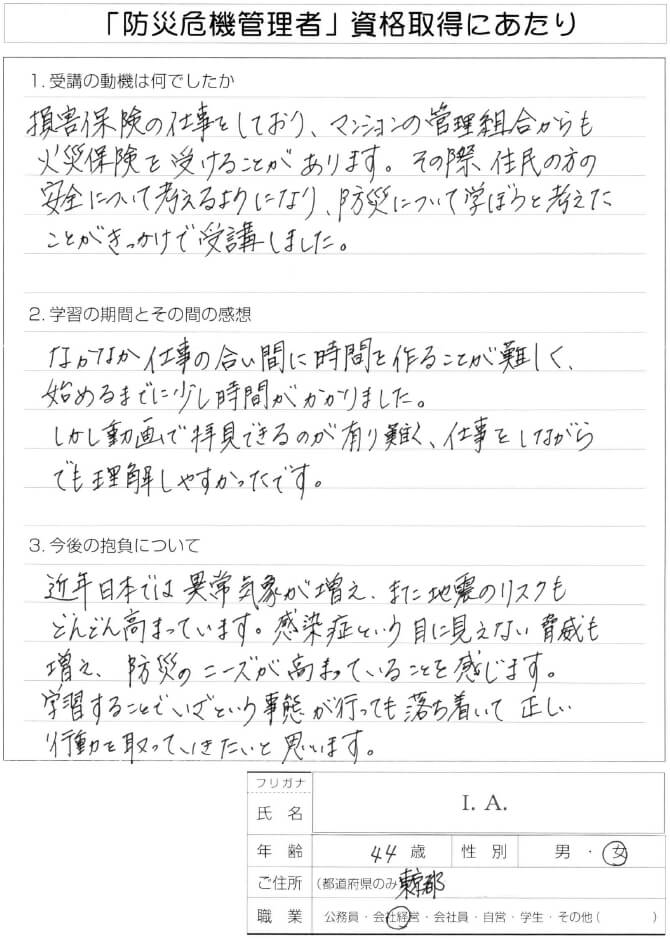 「防災危機管理者」資格取得にあたり
1. 受講の動機は何でしたか
損害保険の仕事をしており、マンションの管理組合からも
火災保険を受けることがあります。その際、住民の方の
安全について考えるようになり、防災について学ぼうと考えた
ことがきっかけで受講しました。
2. 学習の期間とその間の感想
なかなか仕事の合い間に時間を作ることが難しく、
始めるまでに少し時間がかかりました。
しかし動画で拝見できるのが有り難く、仕事をしながら
でも理解しやすかったです。
3. 今後の抱負について
近年日本では異常気象が増え、また地震のリスクも
どんどん高まっています。感染症という目に見えない脅威も
増え、防災のニーズが高まっていることを感じます。
学習することでいざという事態が行っても落ち着いて正しい
行動を取っていきたいと思います。
フリガナ
氏 名 I. A.
年 齢 44 歳 性 別 男 ・ 女
ご住所 (都道府県のみ 東京都
職 業 公務員・会社経営・会社員・自営・学生・その他( )